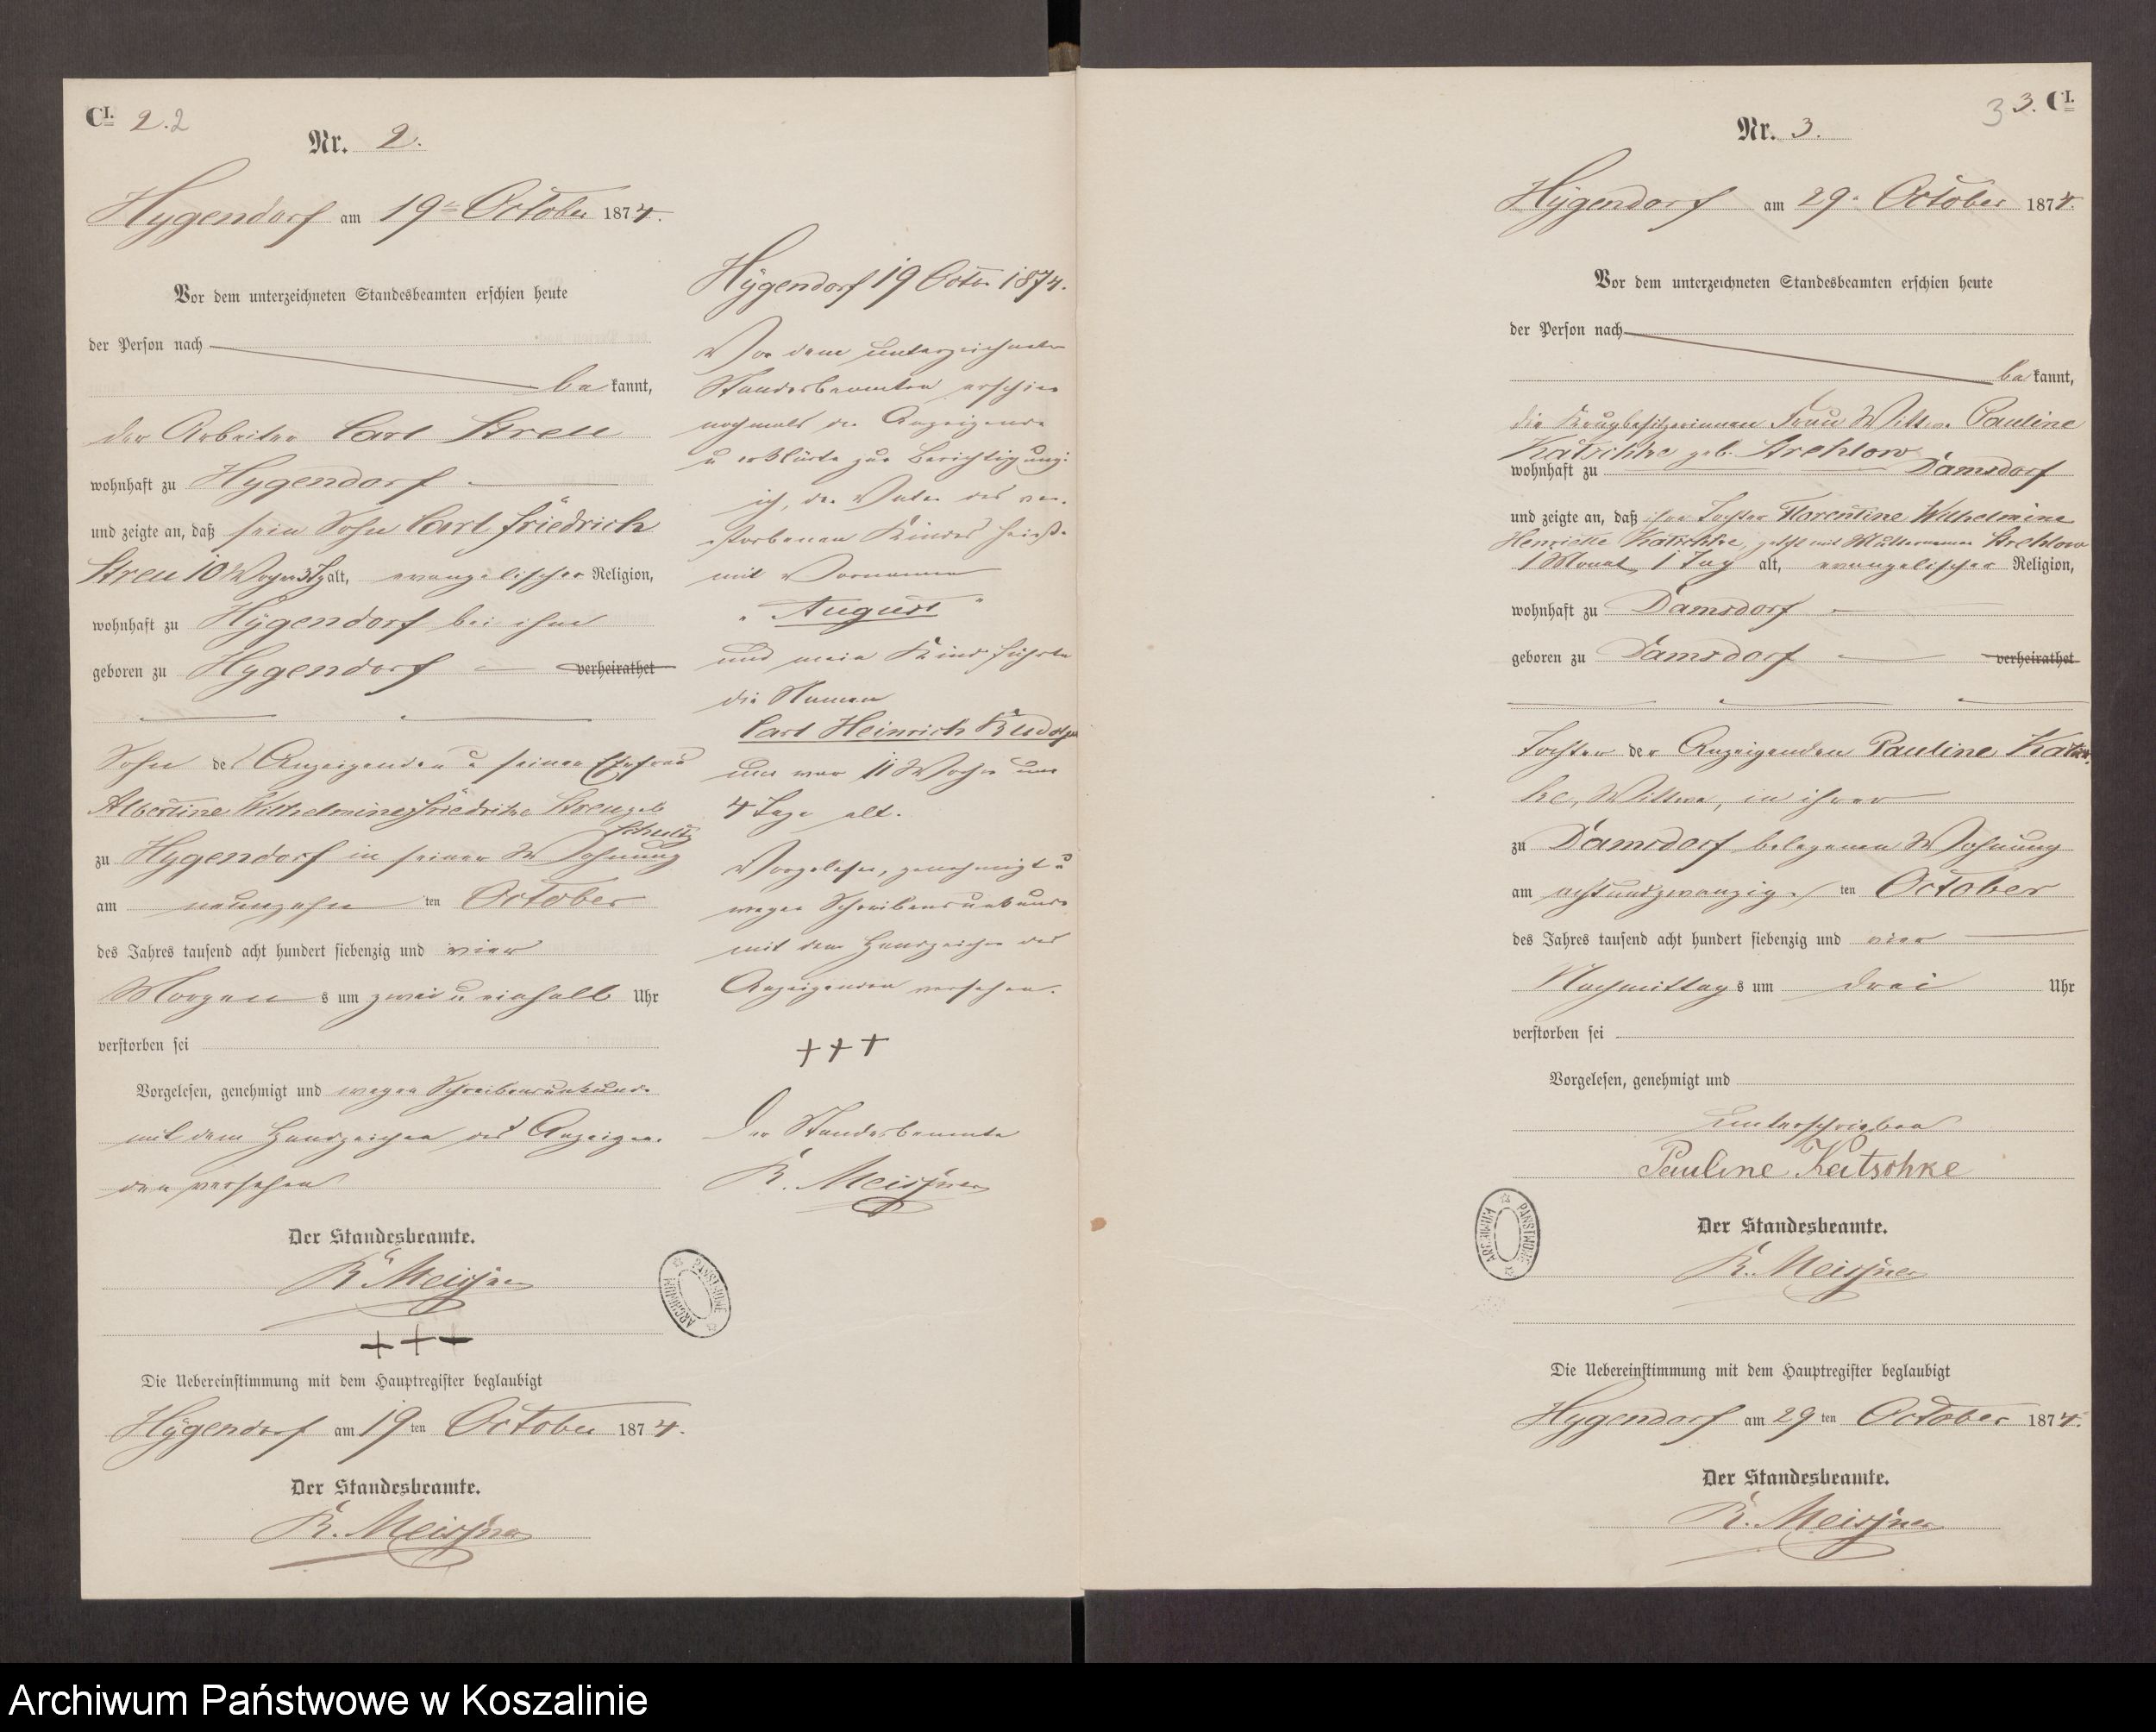 CI. 2. 2
Nr. 2.
Hygendorf am 19ten October 1874.
Vor dem unterzeichneten Standesbeamten erschien heute
der Person nach
bekannt,
der Arbeiter Carl Streu
wohnhaft zu Hygendorf
und zeigte an, daß sein Sohn Carl Friedrich
Streu 10 Wochen 3 Tg alt, evangelischer Religion,
wohnhaft zu Hygendorf bei ihm
geboren zu Hygendorf verheirathet
Sohn des Anzeigenden u seiner Ehefrau
Albertine Wilhelmine Friedrike Streu geb
Schultz
zu Hygendorf in seiner Wohnung
am neunzehn ten October
des Jahres tausend acht hundert siebenzig und vier
Morgens um zwei u einhalb Uhr
verstorben sei
Vorgelesen, genehmigt und wegen Schreibensunkunde
mit dem Handzeichen des Anzeigen-
den versehen
Der Standesbeamte.
R. Meissner
+++
Die Uebereinstimmung mit dem Hauptregister beglaubigt
Hygendorf am 19ten October 1874.
Der Standesbeamte.
R. Meissner
Hygendorf 19 Octbr 1874.
Vor dem unterzeichneten
Standesbeamten erschien
nochmals der Anzeigende
u erklärte zur Berichtigung:
ich, der Vater des ver-
storbenen Kindes heiße
mit Vornamen
"August"
und mein Kind führte
die Namen
Carl Heinrich Rudolph
und war 11 Wochen und
4 Tage alt.
Vorgelesen, genehmigt u
wegen Schreibensunkunde
mit dem Handzeichen des
Anzeigenden versehen.
+++
Der Standesbeamte
R. Meissner
ARCHIWUM PAŃSTWOWE
3 3. CI.
Nr. 3.
Hygendorf am 29. October 1874.
Vor dem unterzeichneten Standesbeamten erschien heute
der Person nach
bekannt,
die Krugbesitzerinnen Frau Wittwe Pauline
Katschke geb. Strehlow
wohnhaft zu Damsdorf
und zeigte an, daß ihre Tochter Florentine Wilhelmine
Henriette Katschke, mit Mutternamen Strehlow
1 Monat, 1 Tag alt, evangelischer Religion,
wohnhaft zu Damsdorf
geboren zu Damsdorf verheirathet
Tochter der Anzeigenden Pauline Katsch-
ke, Wittwe, in ihrer
zu Damsdorf belegenen Wohnung
am achtundzwanzigsten October
des Jahres tausend acht hundert siebenzig und vier
Nachmittags um drei Uhr
verstorben sei
Vorgelesen, genehmigt und
unterschrieben
Pauline Katschke
Der Standesbeamte.
R. Meissner
ARCHIWUM PAŃSTWOWE
Die Uebereinstimmung mit dem Hauptregister beglaubigt
Hygendorf am 29ten October 1874.
Der Standesbeamte.
R. Meissner
Archiwum Państwowe w Koszalinie